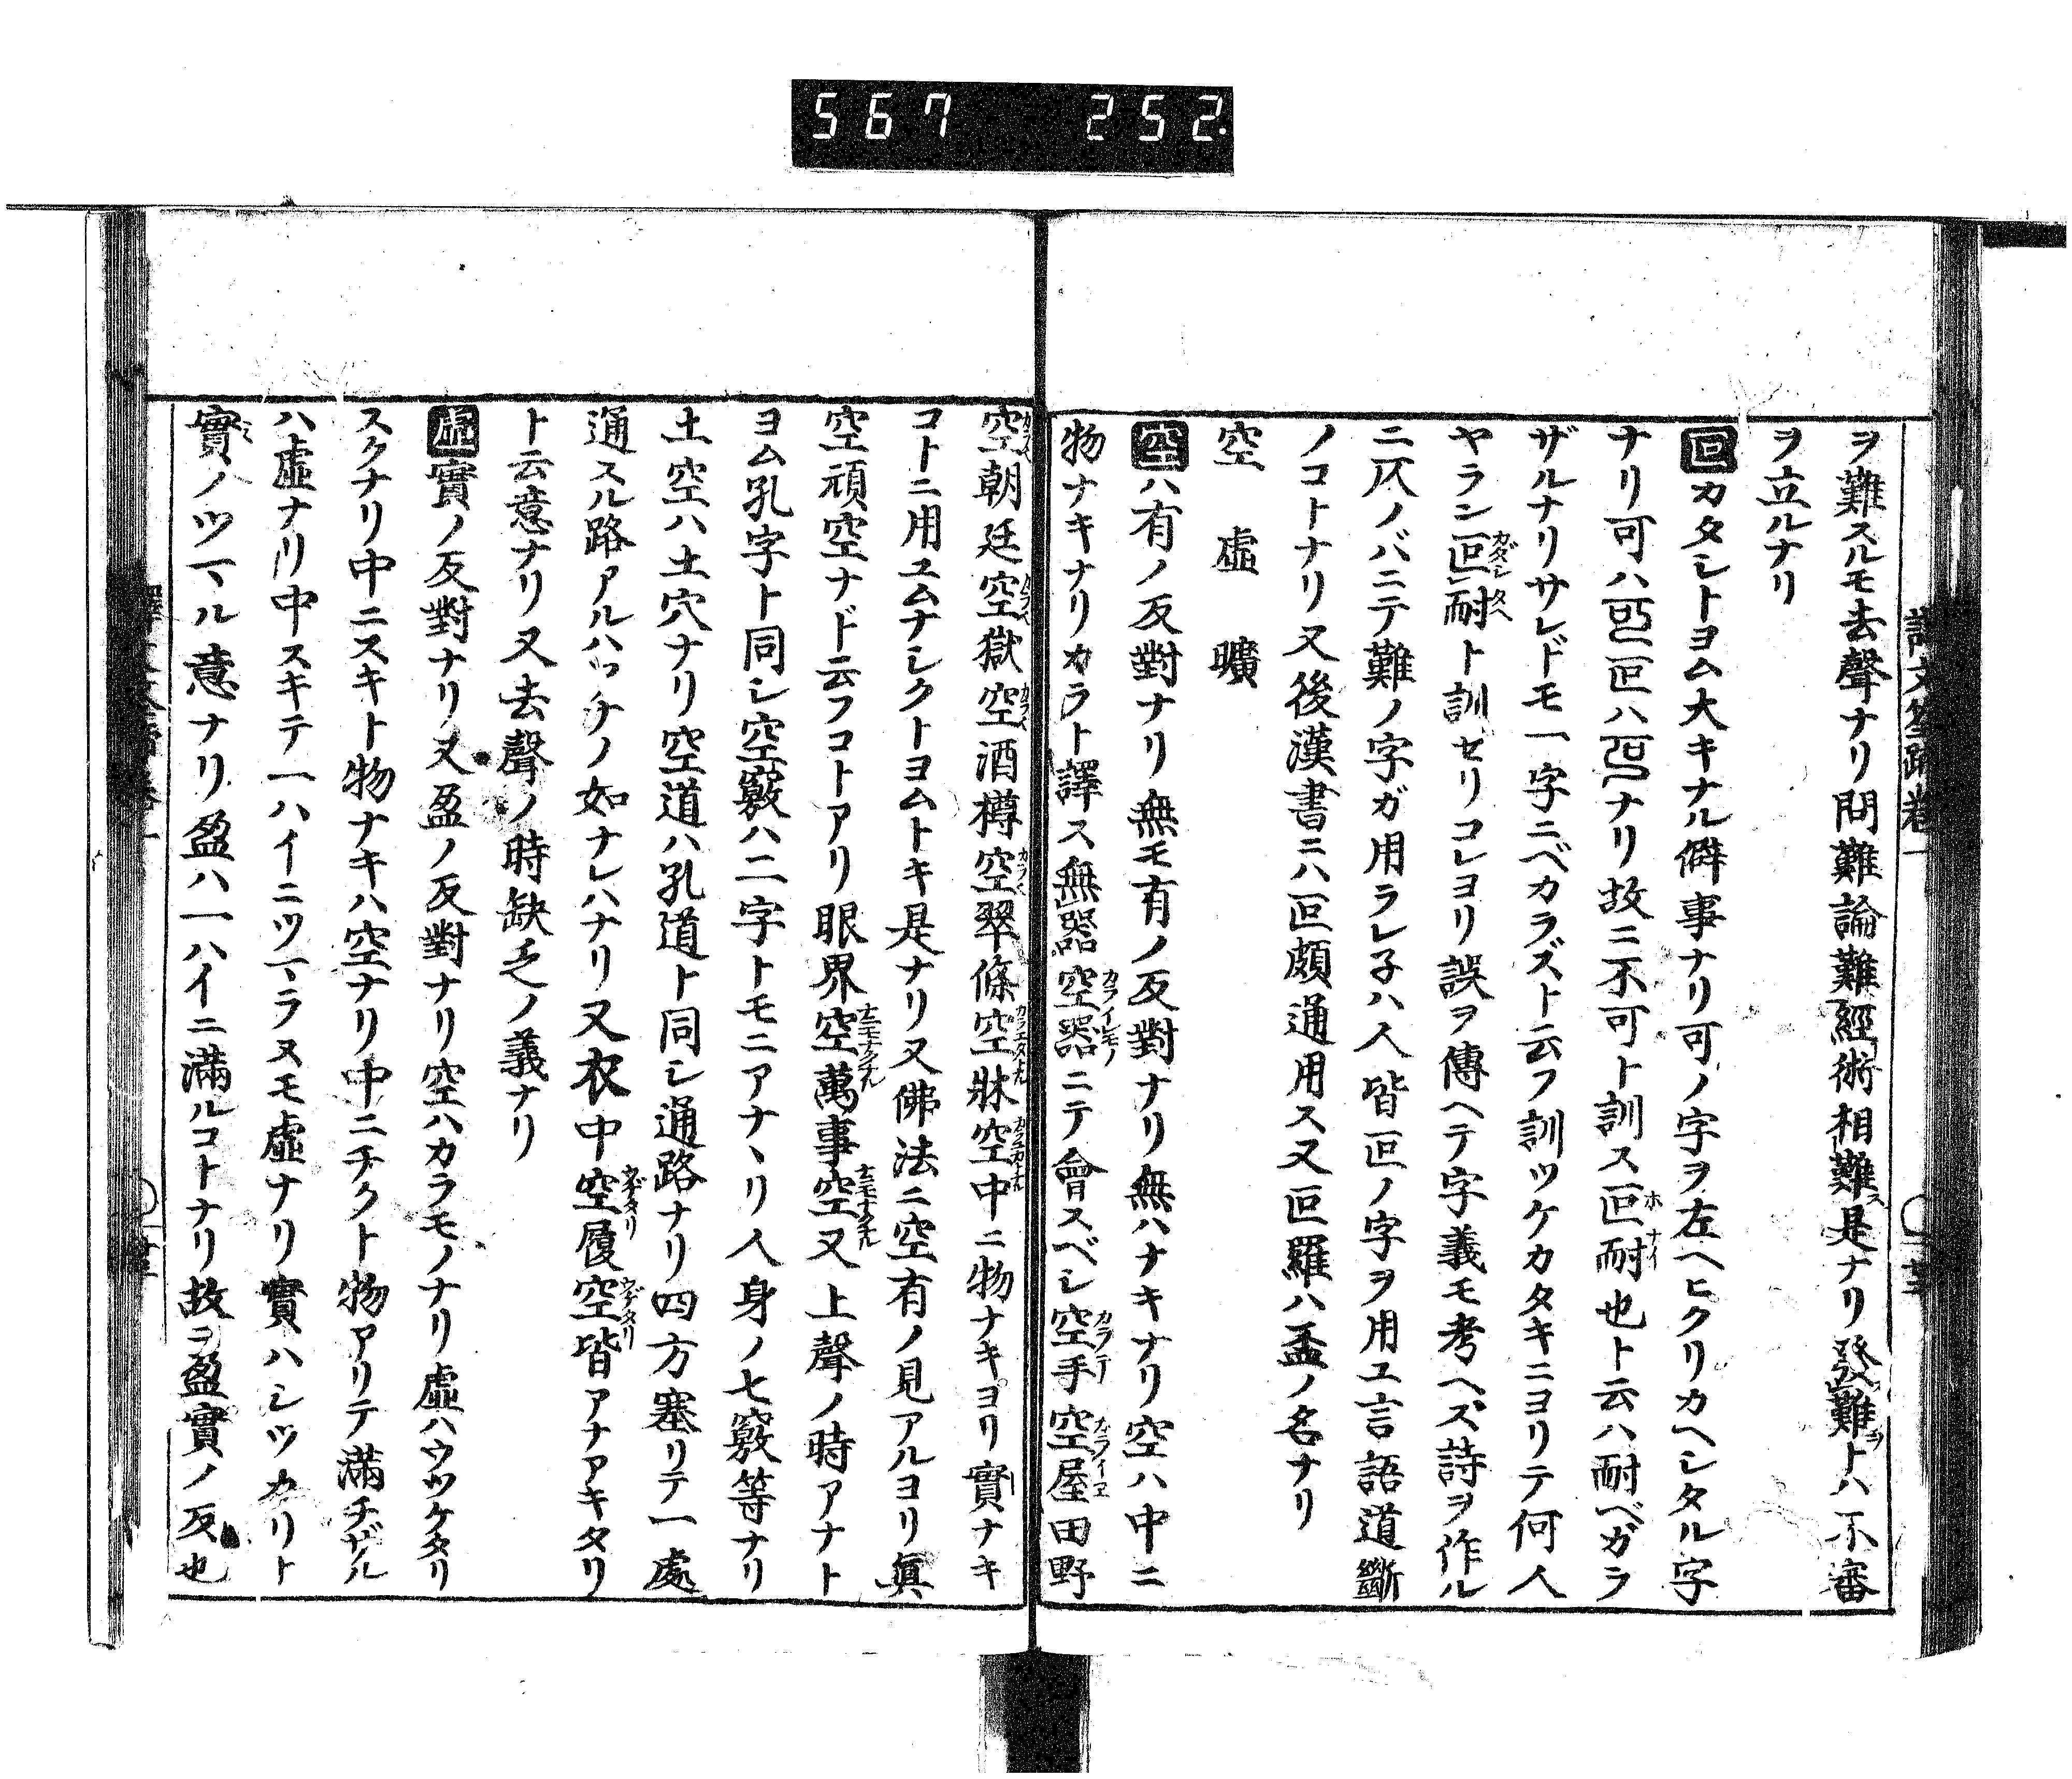 567 252.
譯文筌蹄卷一
ヲ難スルモ去聲ナリ問難論難經術相難ス是ナリ發難トハ不審
ヲ立ルナリ
叵カタシトヨム大キナル僻事ナリ可ノ字ヲ左ヘヒクリカヘシタル字
ナリ可ハ叵ハナリ故ニ不可ト訓ス叵耐也ト云ハ耐ベガラ
ザルナリサレドモ一字ニベカラズト云フ訓ツケカタキニヨリテ何人
ヤラン叵耐ト訓セリコレヨリ誤ヲ傳ヘテ字義モ考ヘズ詩ヲ作ル
ニ仄ノバニテ難ノ字ガ用ラレ子ハ人皆叵ノ字ヲ用ユ言語道斷
ノコトナリ又後漢書ニハ叵頗通用ス又叵羅ハ盃ノ名ナリ
空 虛 曠
空ハ有ノ反對ナリ無モ有ノ反對ナリ無ハナキナリ空ハ中ニ
物ナキナリカラト譯ス無器空器ニテ會スベシ空手空屋田野
空朝廷空獄空酒樽空翠條空牀空中ニ物ナキヨリ實ナキ
コトニ用ユムナシクトヨムトキ是ナリ又佛法ニ空有ノ見アルヨリ眞
空頑空ナド云フコトアリ眼界空萬事空又上聲ノ時アナト
ヨム孔字ト同シ空竅ハ二字トモニアナヽリ人身ノ七竅等ナリ
土空ハ土穴ナリ空道ハ孔道ト同シ通路ナリ四方塞リテ一處
通スル路アルハッチノ如ナレハナリ又衣中空履空皆アナアキタリ
ト云意ナリ又去聲ノ時缺乏ノ義ナリ
虛實ノ反對ナリ又盈ノ反對ナリ空ハカラモノナリ虛ハウツケタリ
スクナリ中ニスキト物ナキハ空ナリ中ニチクト物アリテ滿チザル
ハ虛ナリ中スキテ一ハイニツマラヌモ虛ナリ實ハシツカリト
實ノツマル意ナリ盈ハ一ハイニ滿ルコトナリ故ヲ盈實ノ反也